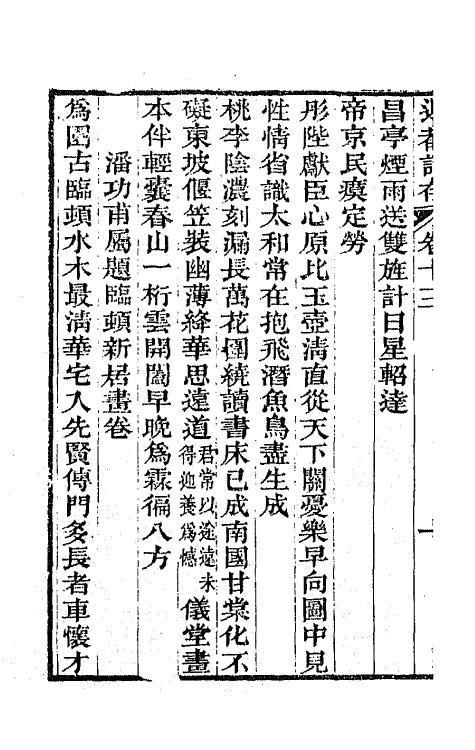 昌亭煙雨送雙旌計日星軺達
帝京民瘼定勞
彤陛獻臣心原比玉壺清直從天下關憂樂早向圖中見
性情省識太和常在抱飛潛魚鳥盡生成
桃李陰濃刻漏長萬花圍繞讀書床已成南國甘棠化不
礙東坡偃笠裝幽薄絳華思遠道君常以途遠未得迎養爲憾儀堂畫
本伴輕囊春山一桁雲開闔早晚爲霖徧八方
潘功甫屬題臨頓新居畫卷
爲園古臨頓水木最清華宅人先賢傳門多長者車懷才